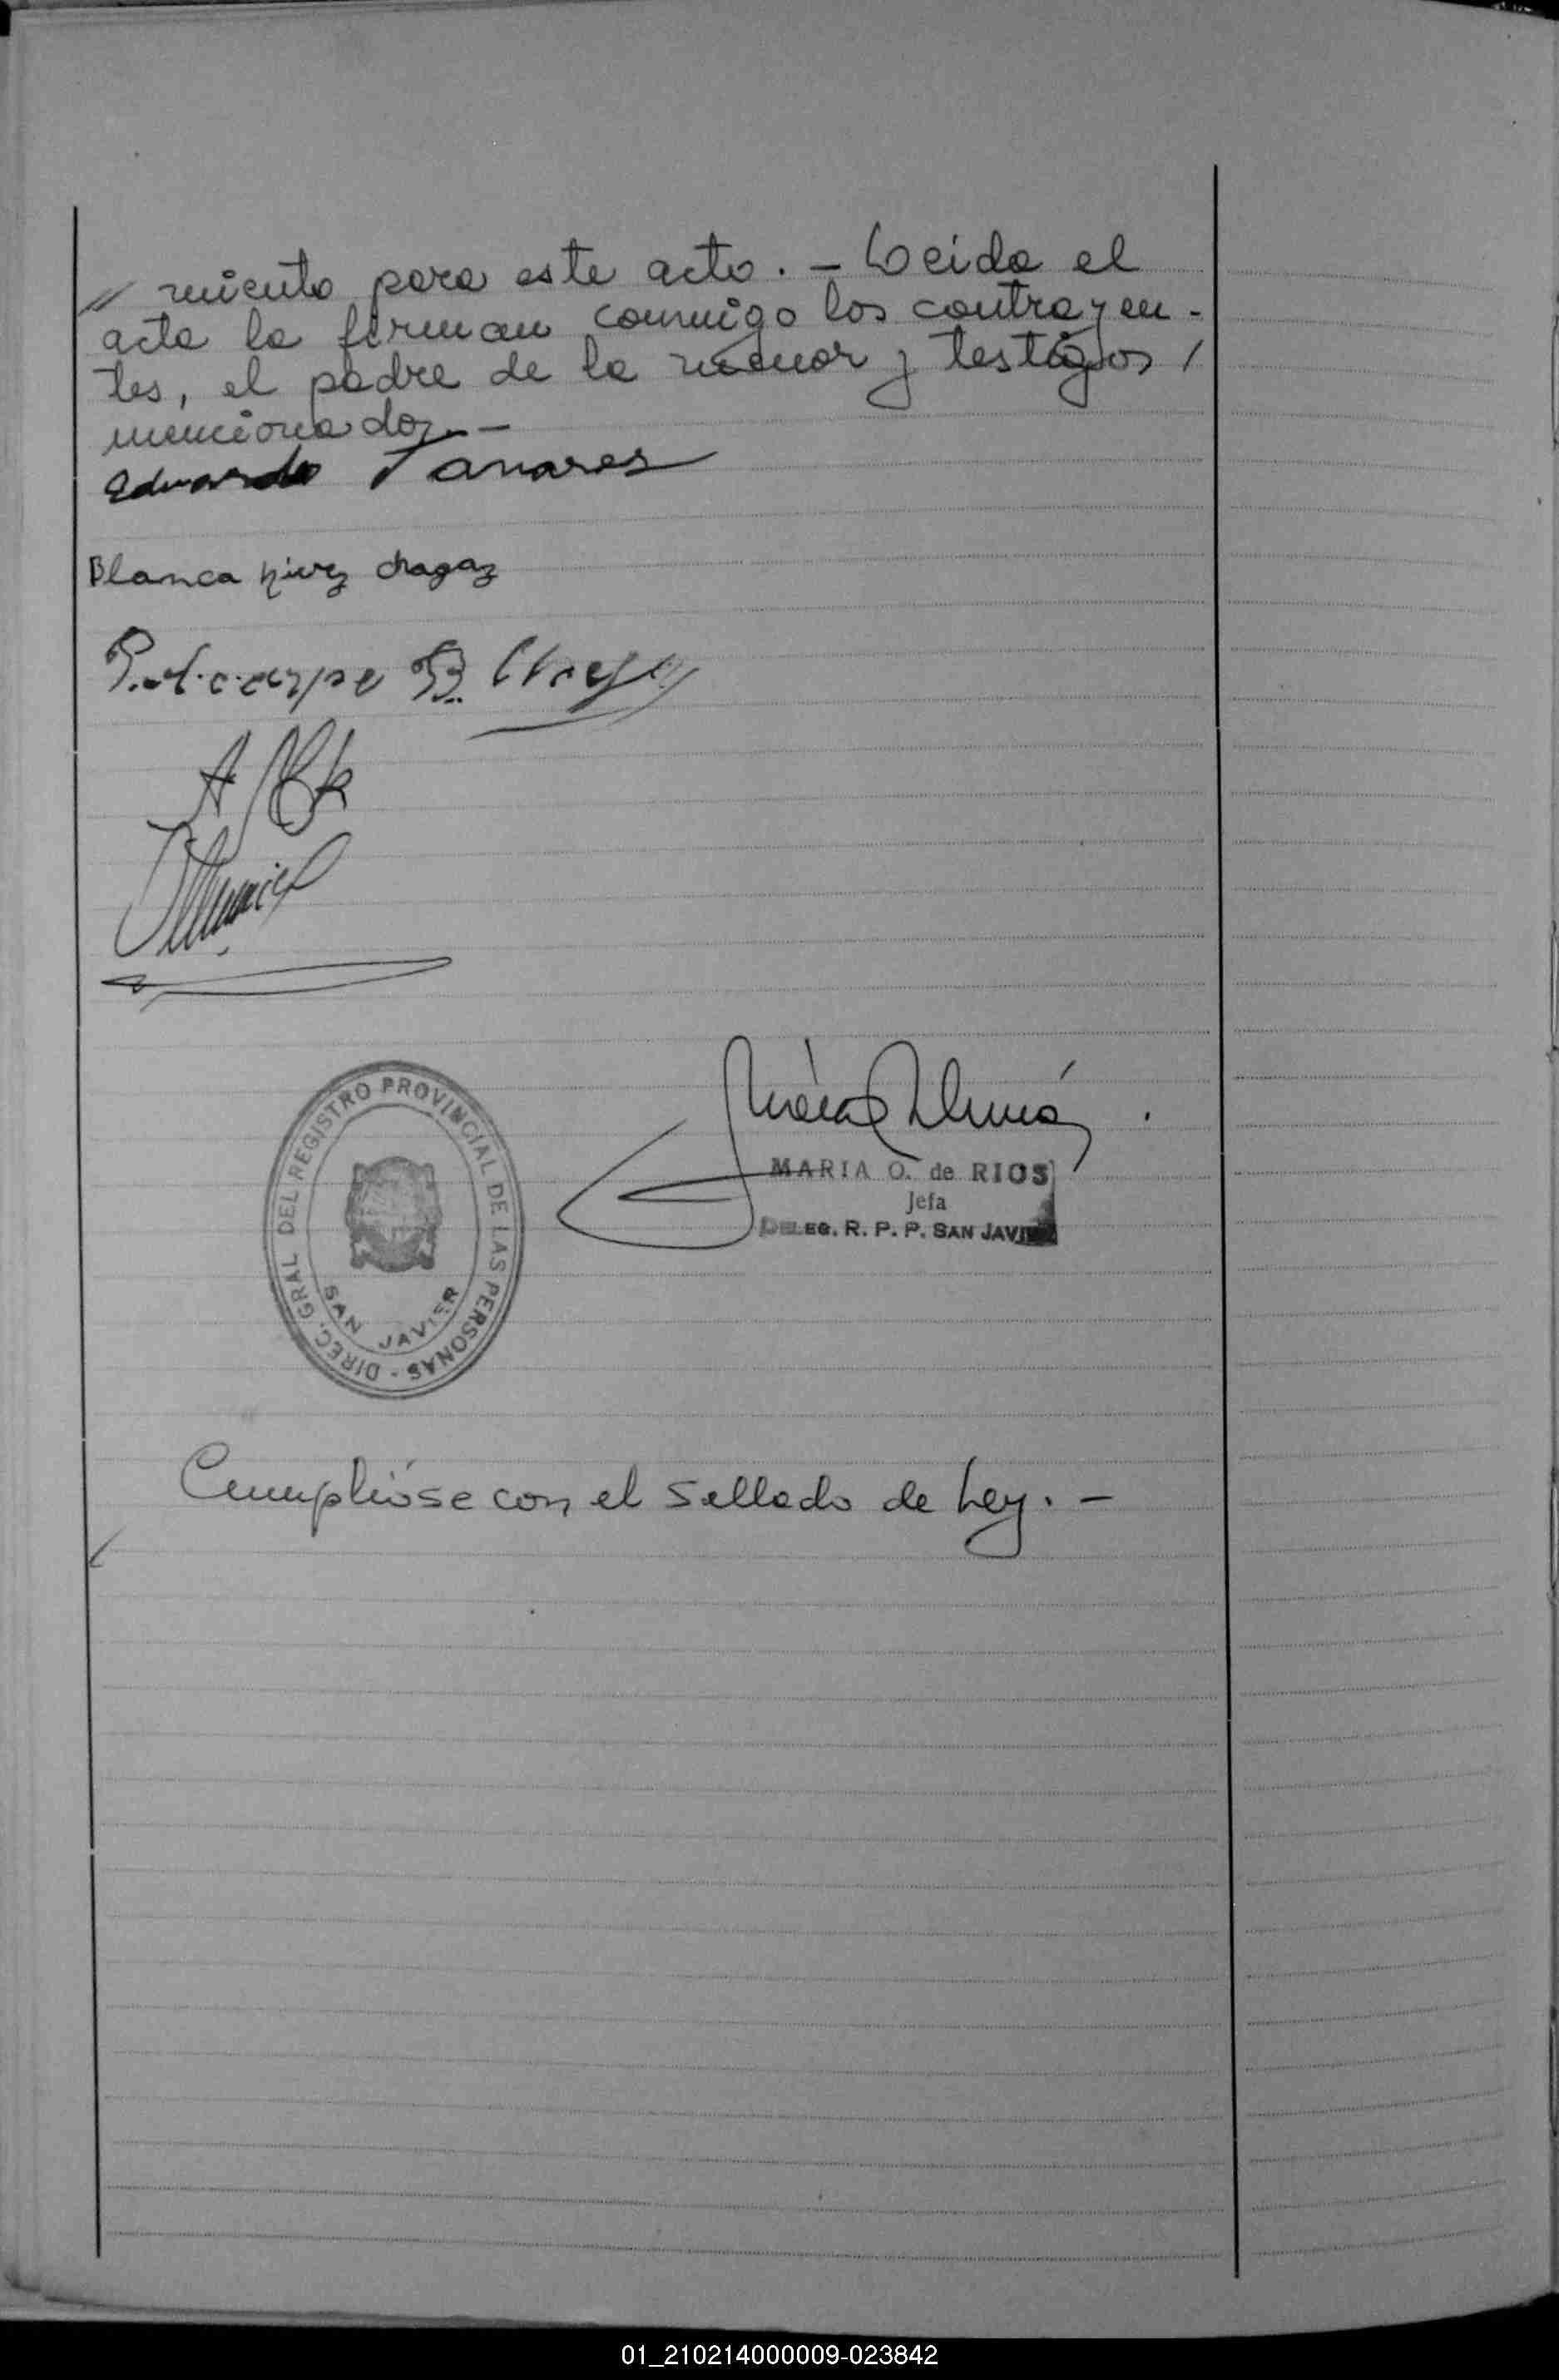 // miento para este acto. - Leida el
acta la firman conmigo los contrayen-
tes, el padre de la menor y testigos /
mencionados.-
Eduardo Tavares
Blanca Nivez chagaz
Policarpo B. Chagas
DIREC. GRAL DEL REGISTRO PROVINCIAL DE LAS PERSONAS -
SAN JAVIER
MARIA O. de RIOS
Jefa
DELEG. R. P. P. SAN JAVIER
Cumplióse con el sellado de Ley. -
01_210214000009-023842